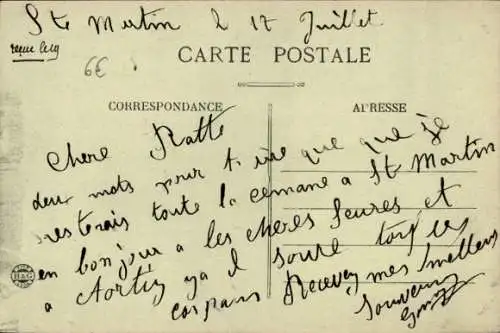 Ste Martin le 17 Juillet
6€
CARTE POSTALE
CORRESPONDANCE
ADRESSE
Chere Ratte
deux mots pour te dire que que je
resterais toute la cemane a St Martin
en bonjour a les cheres Seures et
a ya il soure
corpans Recevez mes meillers
Souvenir